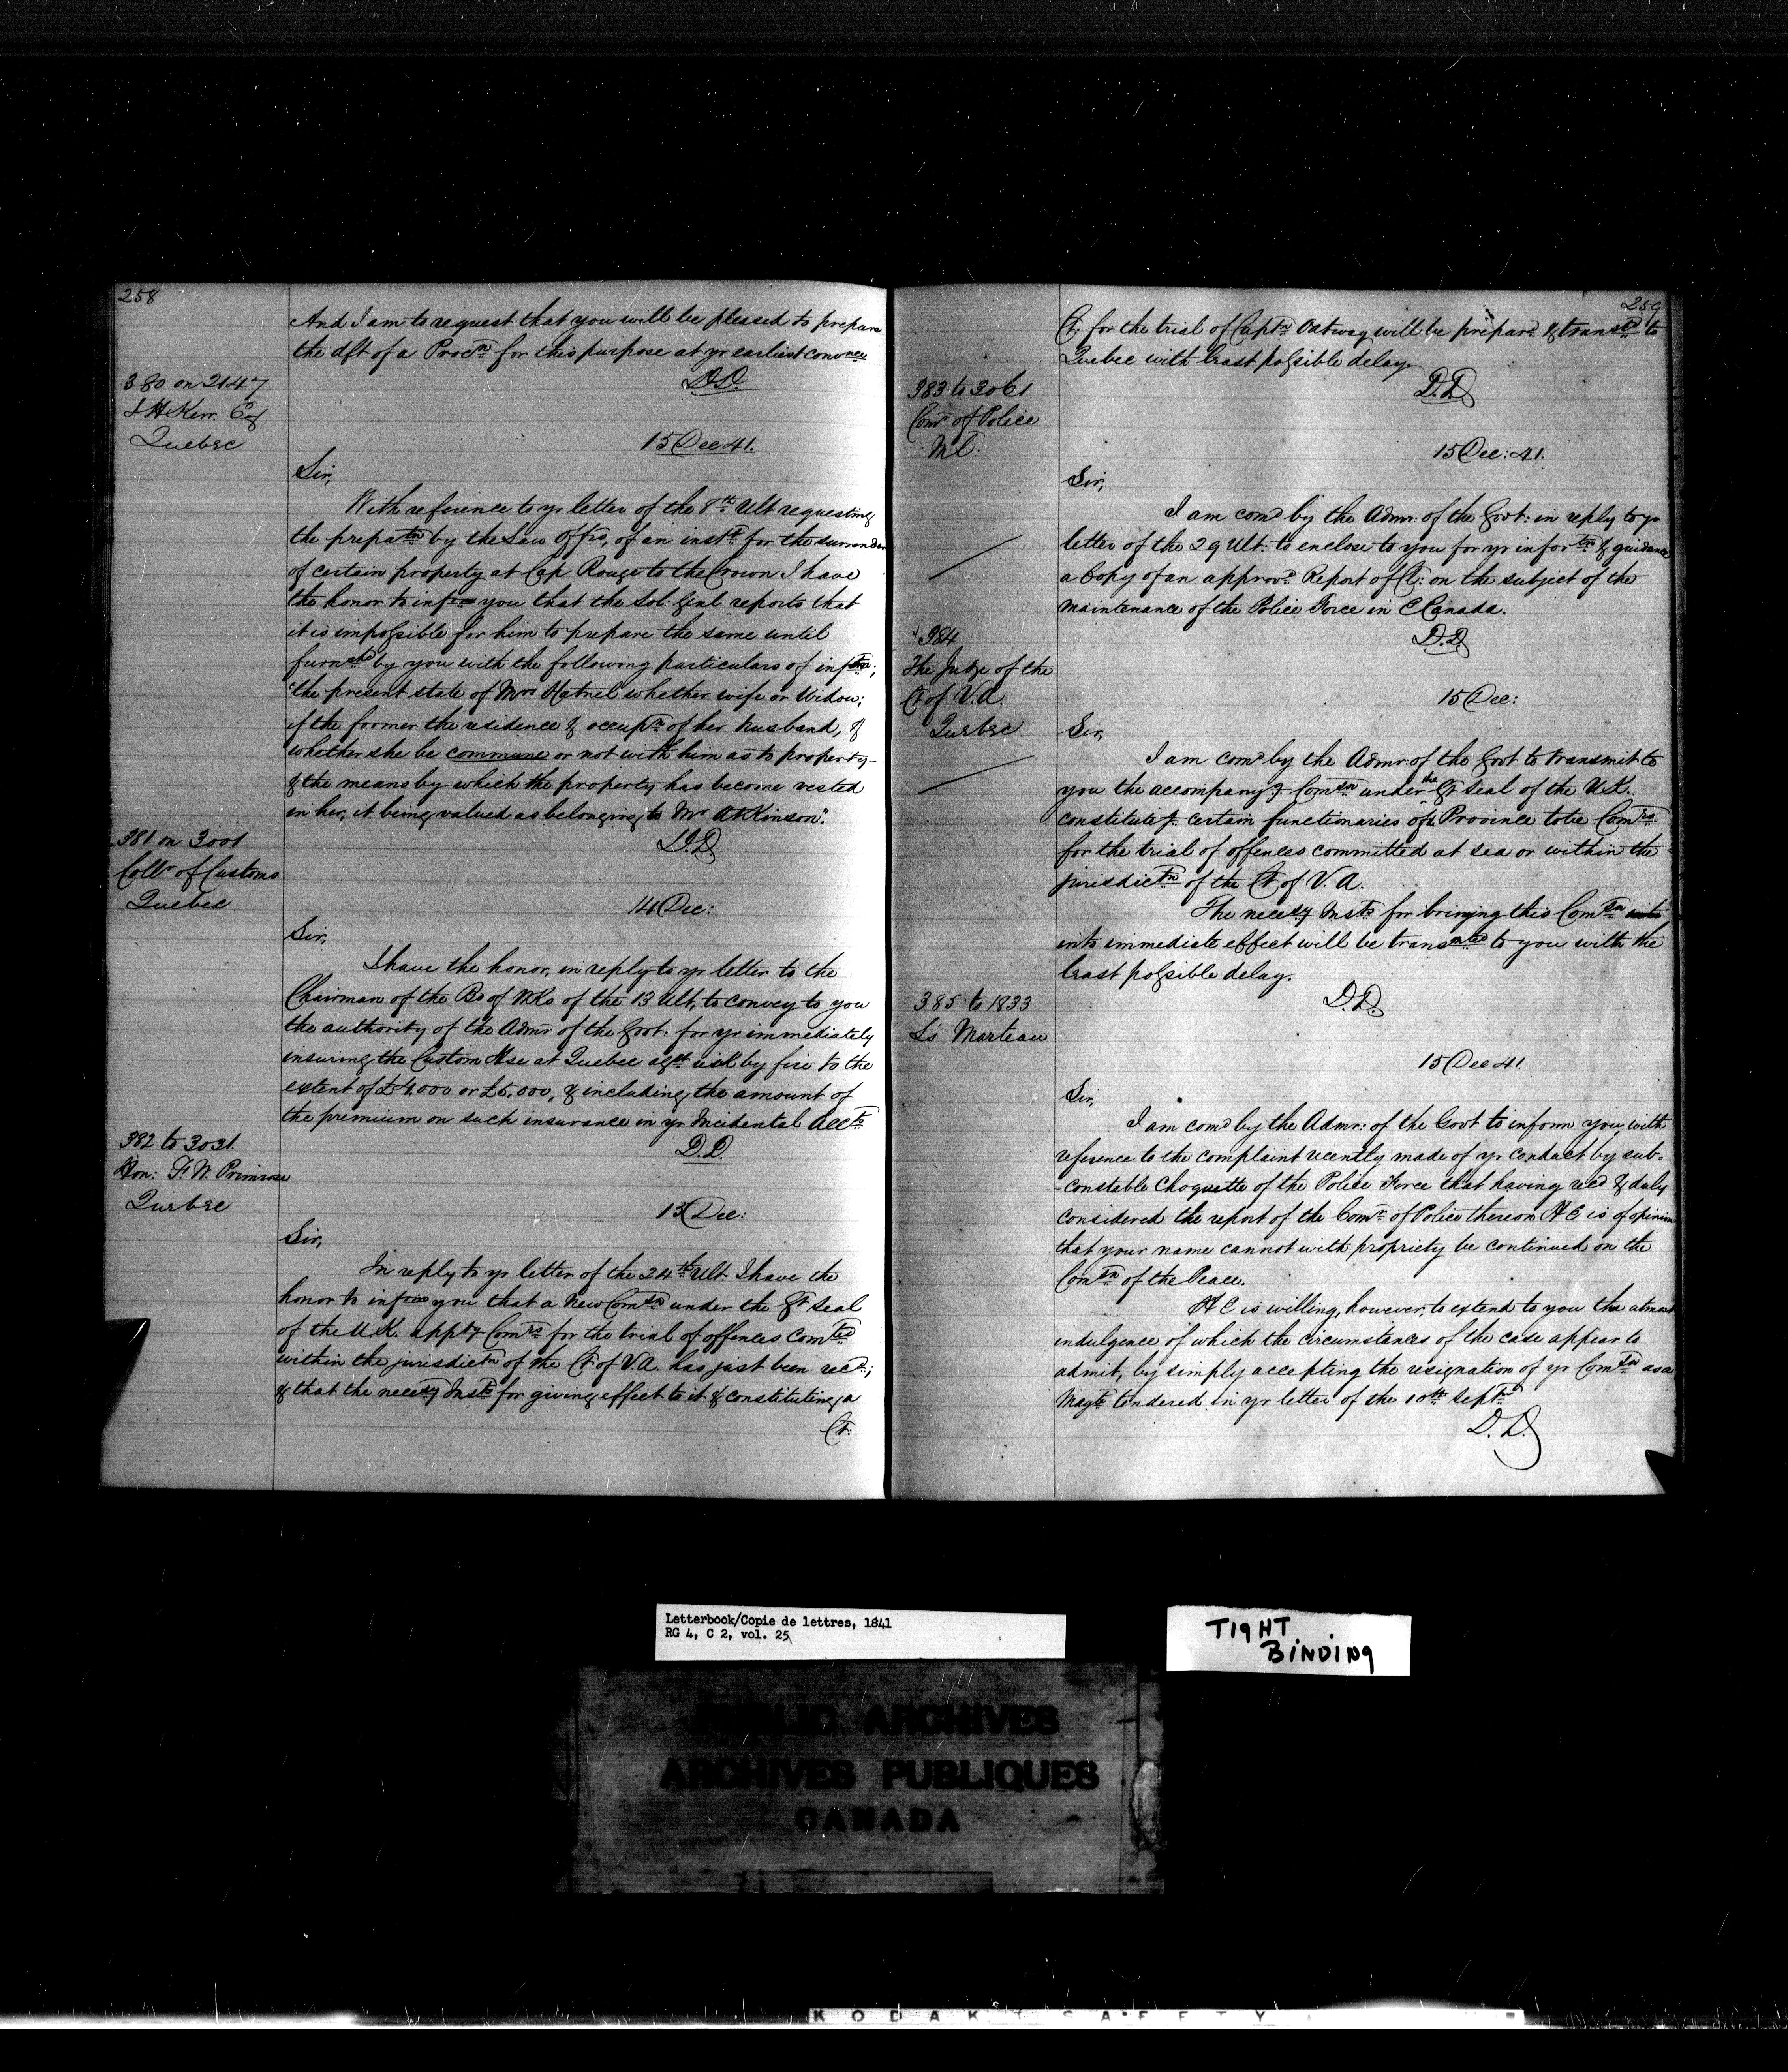 258
And I am to request that you will be pleased to prepare
the dft of a Procn for this purpose at yr earliest convnce
D.D.
380 on 2147
J H Kerr. Esq
Quebec
15 Dec 41.
Sir,
With reference to yr letter of the 8th Ult requesting
the prepatn by the Law Offrs, of an instt for the surrender
of certain property at Cap Rouge to the Crown I have
the honor to inform you that the Sol: Genl reports that
it is impossible for him to prepare the same until
furnshd by you with the following particulars of inftn;
"the present state of Mrs Hatnel whether wife or Widow;
if the former the residence & occuptn of her husband, &
whether she be commune or not with him as to property-
& the means by which the property has become vested
in her, it being valued as belonging to Mr Atkinson".
D.D
381 on 3001
Collr of Customs
Quebec
14 Dec:
Sir,
I have the honor, in reply to yr letter to the
Chairman of the Bd of Wks of the 13 Ult, to convey to you
the authority of the Admr of the Govt: for yr immediately
insuring the Custom Hse at Quebec agst risk by fire to the
extent of £4,000 or £5,000, & including the amount of
the premium on such insurance in yr Incidental Accts
D.D.
382 to 3031.
Hon: F. W. Primrose
Quebec
15 Dec:
Sir,
In reply to yr letter of the 24th Ult. I have the
honor to inform you that a New Comsn under the Gt Seal
of the U.K. apptg Comrs for the trial of offences Comted
within the jurisdictn of the Ct of V.A. has just been recd;
& that the necessy Insts for giving effect to it & constituting a
Ct:
259
Ct: for the trial of Captn Oatway will be prepard & transtd to
Quebec with least possible delay.
D.D
383 to 3061
Comr of Police
Ml.
15 Dec: 41.
Sir,
I am comd by the Admr: of the Govt: in reply to yr
letter of the 29 Ult: to enclose to you for yr infortn & guidance
a Copy of an approvd Report of C: on the subject of the
maintenance of the Police Force in C Canada.
D.D
384
The Judge of the
Ct of V.A.
Quebec
15 Dec:
Sir,
I am comd by the Admr: of the Govt to transmit to
you the accompanyg Comsn under the Gt Seal of the U.K.
constitutg certain functionaries of ye Province to be Comrs
for the trial of offences committed at sea or within the
jurisdictn of the Ct of V.A.
The necessy Insts for bringing this Comsn into
into immediate effect will be transmtd to you with the
least possible delay.
D.D.
385 to 1833
Ls Marteau
15 Dec 41.
Sir,
I am comd by the Admr: of the Govt to inform you, with
reference to the complaint recently made of yr conduct by sub-
-constable Choquette of the Police Force that having recd & duly
considered the report of the Comr of Police thereon H E is of opinion
that your name cannot with propriety be continued on the
Comsn of the Peace.
H E is willing, however, to extend to you the utmost
indulgence of which the circumstances of the case appear to
admit, by simply accepting the resignation of yr Comsn as a
Magte tendered in yr letter of the 10th Septr
D.D.
Letterbook/Copie de lettres, 1841
RG 4, C 2, vol. 25
TIGHT
BINDING
PUBLIC ARCHIVES
ARCHIVES PUBLIQUES
CANADA
KODAK SAFETY